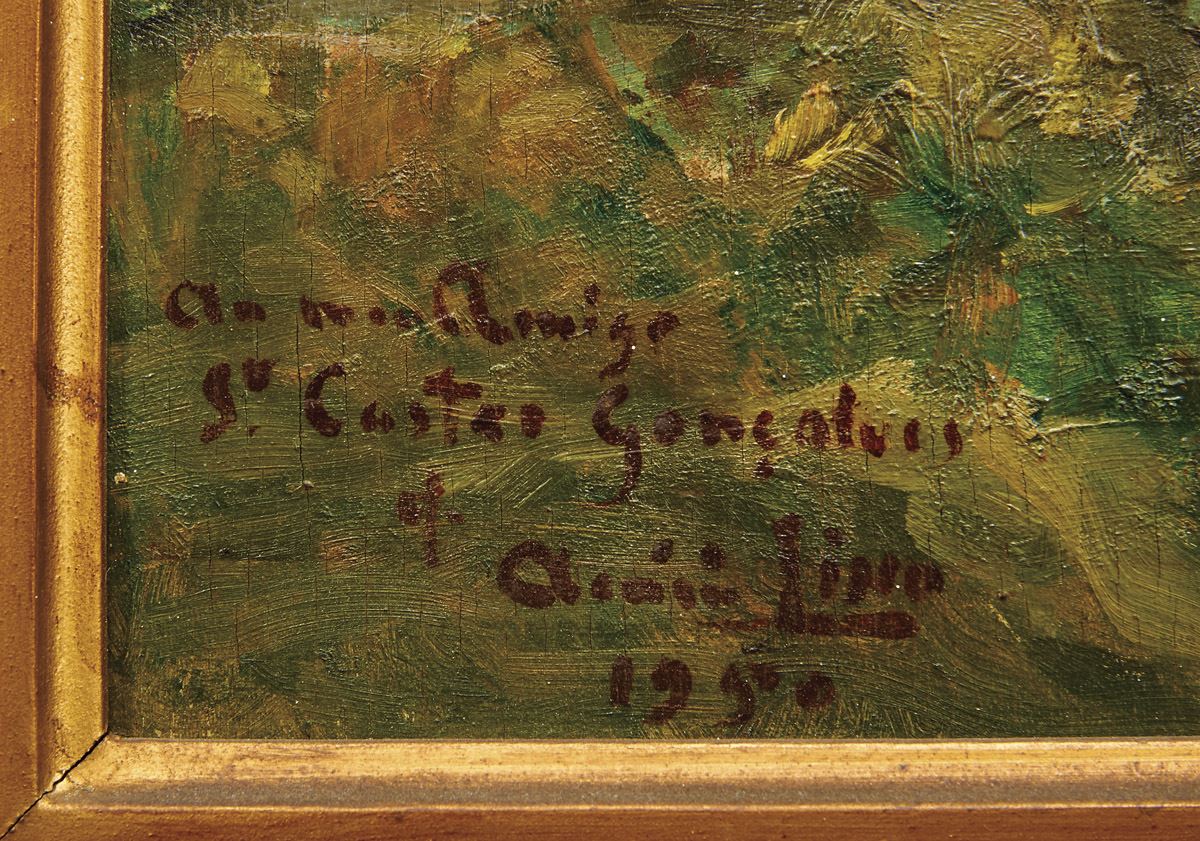 Ao meu Amigo
Sr. Castro Gonçalves
of
Acácio Lino
1950